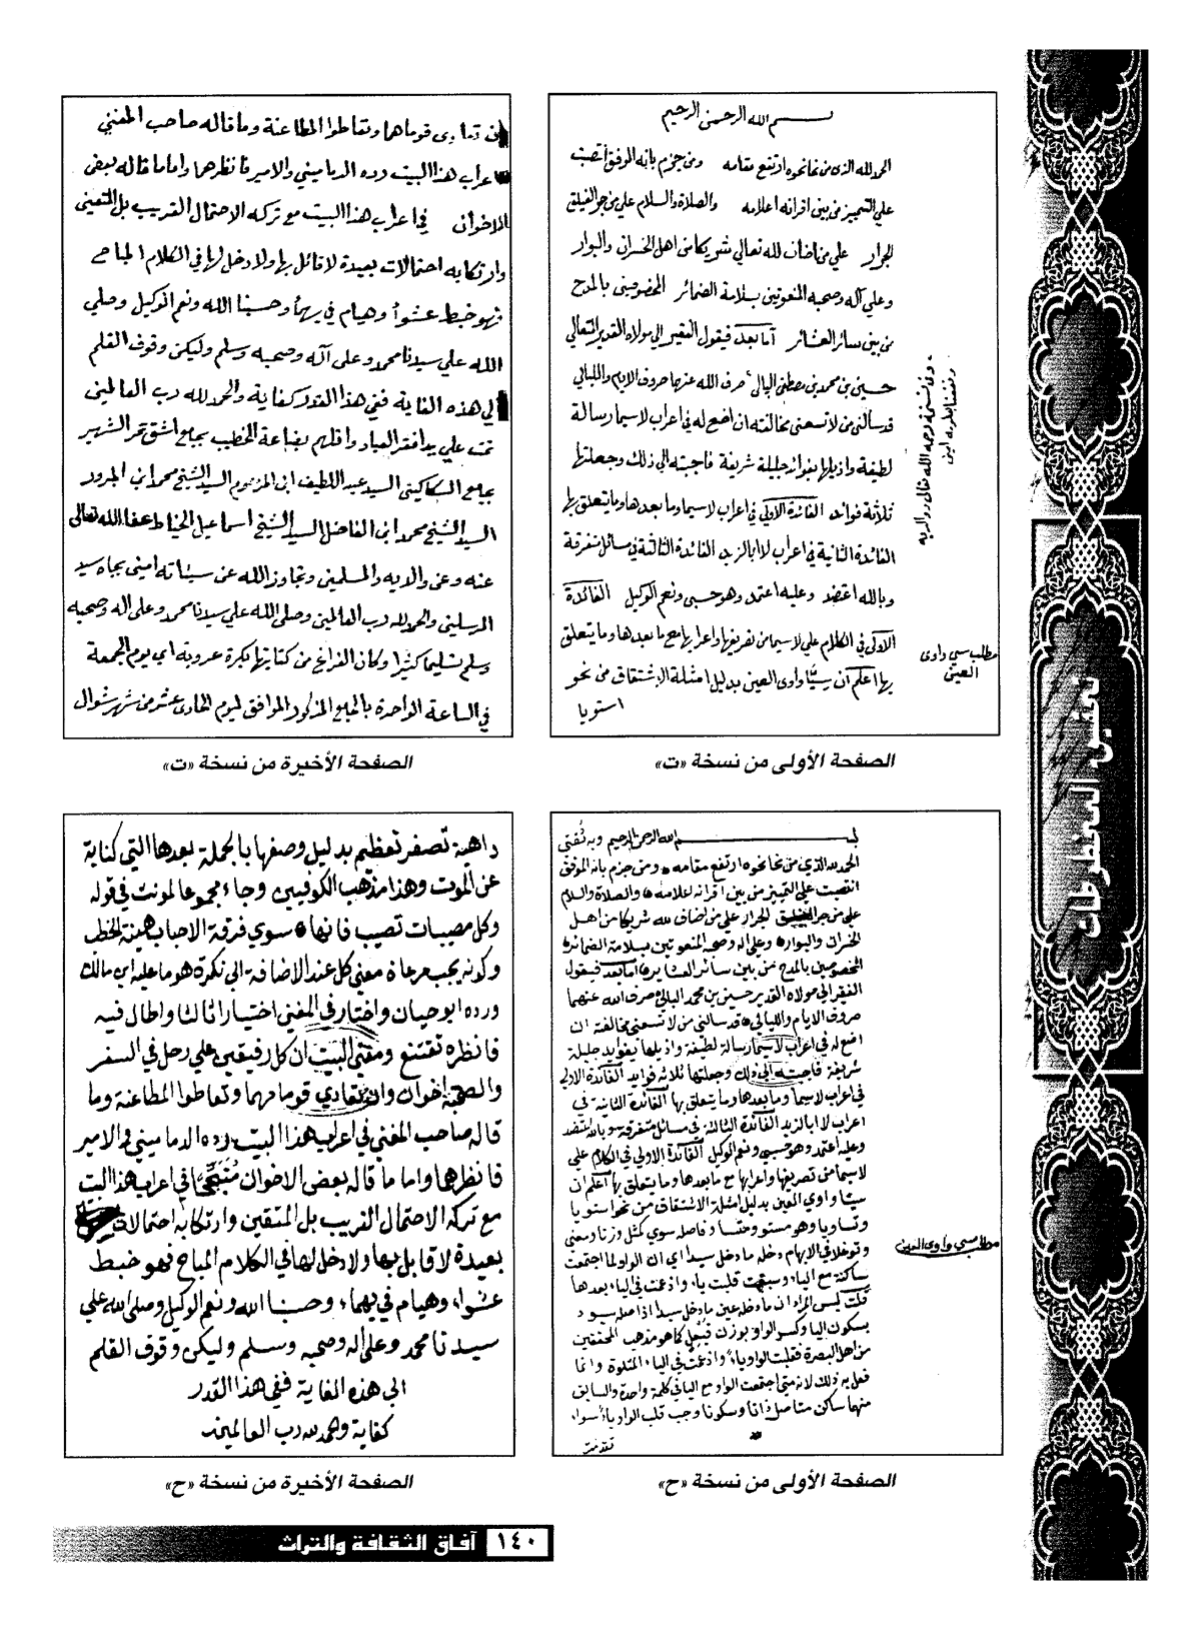 بسم الله الرحمن الرحيم
الحمد لله الذي من نحا نحوه ارتفع مقامه ومن جزم بانه الموفق انتصب
علي التمييز من بين اقرانه اعلامه والصلاة والسلام علي من جر الفيلق
الجرار علي من اضاف لله تعالي شريكا من اهل الخسران والبوار
وعلي آله وصحبه المنعوتين بسلامة الضمائر المخصوصين بالمدح
من بين سائر العشائر أما بعد فيقول الفقير الي مولاه القدير المتعالي
حسين بن محمد بن مصطفى البالي صرف الله عنهما صروف الايام والليالي
قد سألني من لا تسعني مخالفته ان اضع له في اعراب لا سيما رسالة
لطيفة واذيلها بفوائد جليلة شريفة فاجبته الي ذلك وجعلتها
ثلاثة فوائد الفائدة الاولي في اعراب لا سيما وما بعدها وما يتعلق بها
الفائدة الثانية في اعراب لا ابا لزيد الفائدة الثالثة في مسائل متفرقة
وبالله اعتضد وعليه اعتمد وهو حسبي ونعم الوكيل الفائدة
الاولي في الكلام علي لا سيما من تصريفها واعرابها مع ما بعدها وما يتعلق
بها اعلم أن سيًّا واوى العين بدليل امثلة الاشتقاق من نحو
استويا
مطلب سي واوى
العين
الصفحة الأولى من نسخة «ت»
تداوى قوماها وتعاطوا المطاعنة وما قاله صاحب المغني
اعراب هذا البيت رده الدماميني والامير فانظرها واما ما قاله بعض
الاخوان في اعراب هذا البيت مع تركه الاحتمال القريب بل المتعين
وارتكابه احتمالات بعيدة لا قائل بها ولا دخل لها في الكلام المباح
فهو خبط عشواء وهيام في يهماء وحسبنا الله ونعم الوكيل وصلي
الله علي سيدنا محمد وعلى آله وصحبه وسلم وليكن وقوف القلم
الي هذه الغاية ففي هذا القدر كفاية والحمد لله رب العالمين
تمت علي يد افقر العباد واقلهم بضاعة الخطيب بجامع الشهير
بجامع السكاكيني السيد عبد اللطيف ابن المرحوم السيد الشيخ محمد ابن المبرور
السيد الشيخ محمد ابن الفاضل السيد الشيخ اسماعيل الخياط عفا الله تعالى
عنه وعن والديه والمسلمين وتجاوز الله عن سيئاته امين بجاه سيد
المرسلين والحمد لله رب العالمين وصلى الله علي سيدنا محمد وعلى اله وصحبه
وسلم تسليما كثيرا وكان الفراغ من كتابتها بكرة عروبة اي يوم الجمعة
في الساعة الواحدة المذكور الموافق ليوم الحادى عشر من شهر شوال
الصفحة الأخيرة من نسخة «ت»
بسم الله الرحمن الرحيم وبه ثقتي
الحمد لله الذي من نحا نحوه ارتفع مقامه ومن جزم بانه الموفق
انتصب علي التمييز من بين اقرانه اعلامه والصلاة والسلام
علي من جر الفيلق الجرار علي من اضاف لله شريكا من اهل
الخسران والبوار وعلي اله وصحبه المنعوتين بسلامة الضمائر
المخصوصين بالمدح من بين سائر العشاير اما بعد فيقول
الفقير الي مولاه القدير حسين بن محمد البالي صرف الله عنهما
صروف الايام والليالي قد سالني من لا تسعني مخالفته ان
اضع له في اعراب لا سيما رسالة لطيفة واذيلها بفوايد جليلة
شريفة فاجبته الي ذلك وجعلتها ثلاثة فوايد الفائدة الاولي
في اعراب لا سيما وما بعدها وما يتعلق بها الفائدة الثانية في
اعراب لا ابا لزيد الفائدة الثالثة في مسائل متفرقة وبالله اعتضد
وعليه اعتمد وهو حسبي ونعم الوكيل الفائدة الاولي في الكلام علي
لا سيما من تصريفها واعرابها مع ما بعدها وما يتعلق بها اعلم ان
سيّا واوي العين بدليل امثلة الاشتقاق من نحو استويا
وتساويا وهو مستو واصله سوي كمثل وزنا ومعنى
وتوغلا في الابهام دخله ما دخل سيدا اي ان الواو لما اجتمعت
ساكنة مع الياء وسبقت قلبت ياء وادغمت في الياء بعدها
قلت ليس المراد ان ما دخله عين ما دخل سيدا اذ اصله سيود
بسكون اليا وكسر الواو بوزن فيعل كما هو مذهب المحققين
من اهل البصرة فقلبت الواو ياء وادغمت في الياء المتلوة وانما
فعل به ذلك لانه متي اجتمعت الواو مع الياء في كلمة واحدة والسابق
منها ساكن متاصل ذاتا وسكونا وجب قلب الواو ياء سواء
تقدمت
مطلب سي واوى العين
الصفحة الأولى من نسخة «ح»
داهية تصغر تعظيم بدليل وصفها بالجملة بعدها التي كناية
عن الموت وهذا مذهب الكوفيين وجاء مجموعا لمونث في قوله
وكل مصيبات تصيب فانها سوي فرقة الاحباب هينة الخطب
وكونه يجب مرعاة معني كل عند الاضافة الي نكرة هو ما عليه ابن مالك
ورده ابو حيان واختار في المغني اختيارا ثالثا واطال فيه
فانظره تقتنع ومعني البيت ان كل رفيقين علي رحل في السفر
والصحبة اخوان وان تعادي قوما هما وتعاطوا المطاعنة وما
قاله صاحب المغني في اعراب هذا البيت رده الدماميني والامير
فانظرها واما ما قاله بعض الاخوان في اعراب هذا البيت
مع تركه الاحتمال القريب بل المتعين وارتكابه احتمالات
بعيدة لا قايل بها ولا دخل لها في الكلام المباح فهو خبط
عشواء وهيام في يهماء وحسبنا الله ونعم الوكيل وصلى الله علي
سيدنا محمد وعلى اله وصحبه وسلم وليكن وقوف القلم
الى هذه الغاية ففي هذا القدر
كفاية والحمد لله رب العالمين
الصفحة الأخيرة من نسخة «ح»
تحقيق المخطوطات
١٤٠ آفاق الثقافة والتراث